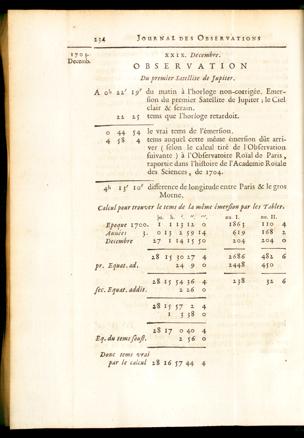 234 JOURNAL DES OBSERVATIONS
1704.
Decemb.
XXIX. Décembre.
OBSERVATION
Du premier Satellite de Jupiter.
A 0h 22' 19" du matin à l'horloge non-corrigée. Emer-
sion du premier Satellite de Jupiter ; le Ciel
clair & serain.
22 25 tems que l'horloge retardoit.
0 44 54 le vrai tems de l'émersion.
4 58 4 tems auquel cette même émersion dût arri-
ver ( selon le calcul tiré de l'Observation
suivante ) à l'Observatoire Roïal de Paris,
raportée dans l'histoire de l'Academie Roïale
des Sciences, de 1704.
4h 13' 10" difference de longitude entre Paris & le gros
Morne.
Calcul pour trouver le tems de la même émersion par les Tables.
jo. h. '. ". '". no. I. no. II.
Epoque 1700. 1 1 13 12 0 1863 110 4
Années 3. 0 13 2 59 14 619 168 2
Décembre 27 1 14 15 50 204 204 0
28 15 30 27 4 2686 482 6
pr. Equat. ad. 24 9 0 2448 450
28 15 54 36 4 238 32 6
sec. Equat. addit. 2 26 0
28 15 57 2 4
1 3 38 0
28 17 0 40 4
Eq. du tems soust. 2 56 0
Donc tems vrai
par le calcul 28 16 57 44 4